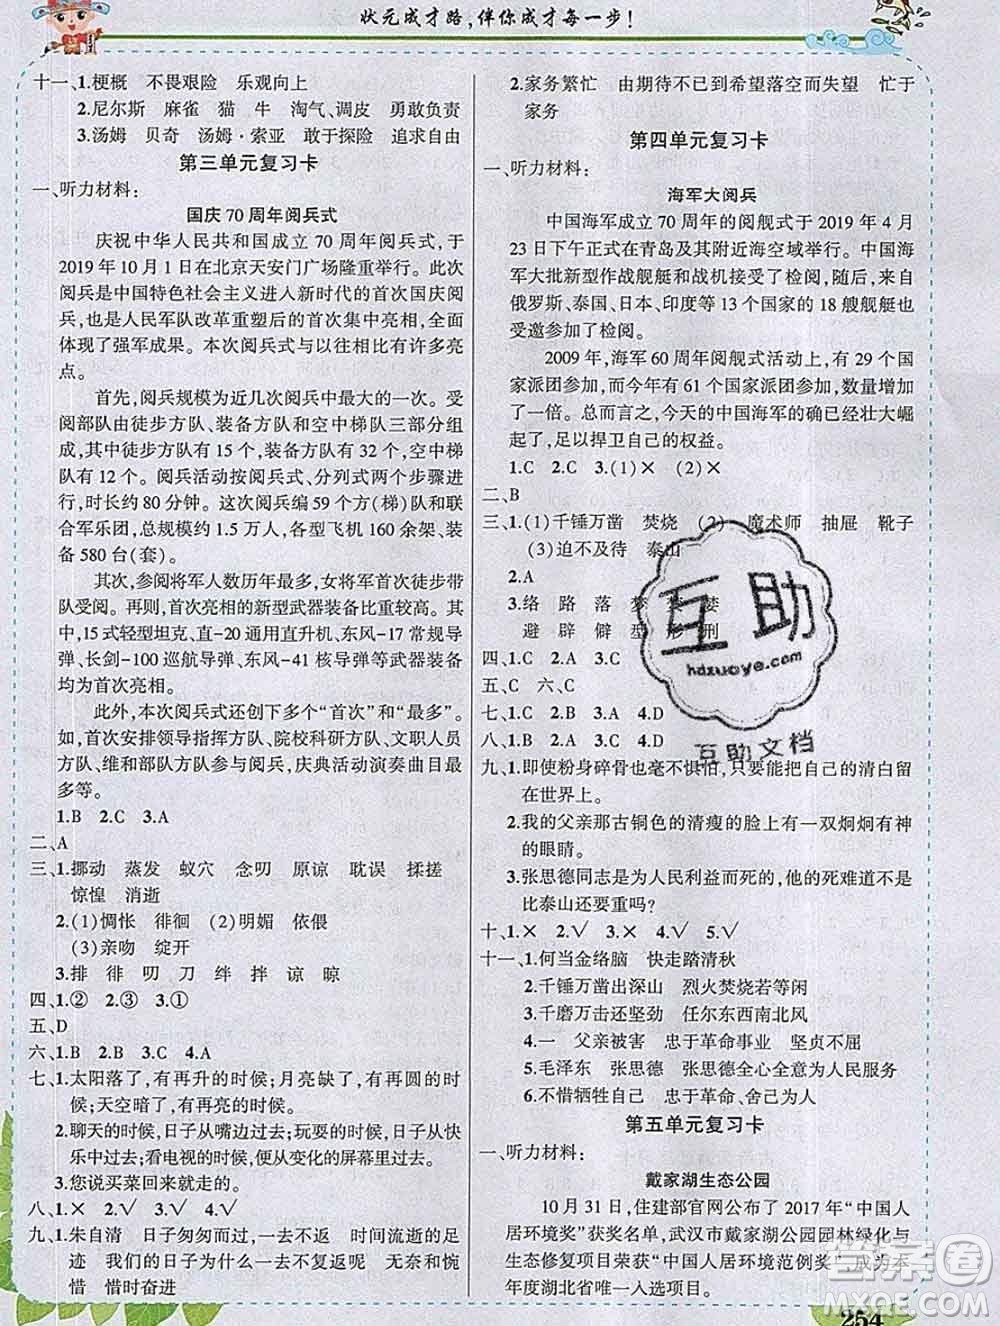 状元成才路,伴你成才每一步!
十一、1.梗概 不畏艰险 乐观向上
2.尼尔斯 麻雀 猫 牛 淘气、调皮 勇敢负责
3.汤姆 贝奇 汤姆·索亚 敢于探险 追求自由
第三单元复习卡
一、听力材料:
国庆 70 周年阅兵式
庆祝中华人民共和国成立 70 周年阅兵式,于
2019 年 10 月 1 日在北京天安门广场隆重举行。此次
阅兵是中国特色社会主义进入新时代的首次国庆阅
兵,也是人民军队改革重塑后的首次集中亮相,全面
体现了强军成果。本次阅兵式与以往相比有许多亮
点。
首先,阅兵规模为近几次阅兵中最大的一次。受
阅部队由徒步方队、装备方队和空中梯队三部分组
成,徒步方队有 15 个,装备方队有 32 个,空中梯
队有 12 个。阅兵活动按阅兵式、分列式两个步骤进
行,时长约 80 分钟。这次阅兵编 59 个方(梯)队和联
合军乐团,总规模约 1.5 万人,各型飞机 160 余架、装
备 580 台(套)。
其次,参阅将军人数历年最多,女将军首次徒步带
队受阅。再则,首次亮相的新型武器装备比重较高。其
中,15 式轻型坦克、直-20 通用直升机、东风-17 常规导
弹、长剑-100 巡航导弹、东风-41 核导弹等武器装备
均为首次亮相。
此外,本次阅兵式还创下多个“首次”和“最多”。
如,首次安排领导指挥方队、院校科研方队、文职人员
方队、维和部队方队参与阅兵,庆典活动演奏曲目最
多等。
1.B 2.C 3.A
二、A
三、1.挪动 蒸发 蚁穴 念叨 原谅 耽误 揉搓
惊惶 消逝
2.(1)惆怅 徘徊 (2)明媚 依偎
(3)亲吻 绽开
3.排 徘 叨 刀 绊 拌 谅 晾
四、1.② 2.③ 3.①
五、D
六、1.B 2.C 3.C 4.A
七、1.太阳落了,有再升的时候;月亮缺了,有再圆的时
候;天空暗了,有再亮的时候。
2.聊天的时候,日子从嘴边过去;玩耍的时候,日子从快
乐中过去;看电视的时候,便从变化的屏幕里过去。
3.您说买菜回来就走的。
八、1.× 2.√ 3.√ 4.×
九、1.朱自清 日子匆匆而过 感叹 时间流逝的足
迹 我们的日子为什么一去不复返呢 无奈和惋
惜 惜时奋进
2.家务繁忙 由期待不已到希望落空而失望 忙于
家务
第四单元复习卡
一、听力材料:
海军大阅兵
中国海军成立 70 周年的阅舰式于 2019 年 4 月
23 日下午正式在青岛及其附近海空域举行。中国海
军大批新型作战舰艇和战机接受了检阅,随后,来自
俄罗斯、泰国、日本、印度等 13 个国家的 18 艘舰艇也
受邀参加了检阅。
2009 年,海军 60 周年阅舰式活动上,有 29 个国
家派团参加,而今年有 61 个国家派团参加,数量增加
了一倍。总而言之,今天的中国海军的确已经壮大崛
起了,足以捍卫自己的权益。
1.C 2.C 3.(1)× (2)×
二、B
三、1.(1)千锤万凿 焚烧 (2) 魔术师 抽屉 靴子
(3)迫不及待 泰山
2.A
3.络 路 落 梦 婪
避 辟 僻 型 形 刑
四、1.C 2.A 3.C
五、C 六、C
七、1.C 2.B 3.A 4.D
八、1.C 2.B 3.D 4.D
九、1.即使粉身碎骨也毫不惧怕,只要能把自己的清白留
在世界上。
2.我的父亲那古铜色的清瘦的脸上有一双炯炯有神
的眼睛。
3.张思德同志是为人民利益而死的,他的死难道不是
比泰山还要重吗?
十、1.× 2.√ 3.√ 4.√ 5.√
十一、1.何当金络脑 快走踏清秋
2.千锤万凿出深山 烈火焚烧若等闲
3.千磨万击还坚劲 任尔东西南北风
4.一 父亲被害 忠于革命事业 坚贞不屈
5.毛泽东 张思德 全心全意为人民服务
6.不惜牺牲自己 忠于革命、舍己为人
第五单元复习卡
一、听力材料:
戴家湖生态公园
10 月 31 日,住建部官网公布了 2017 年“中国人
居环境奖”获奖名单,武汉市戴家湖公园园林绿化与
生态修复项目荣获“中国人居环境范例奖”,成为本
年度湖北省唯一入选项目。
254
互助
hdzuoye.com
互助文档
答案圈
MXQE.COM